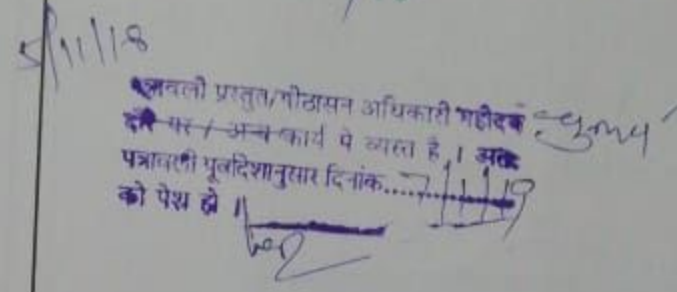 5/11/18
पत्रावली प्रस्तुत/पीठासन अधिकारी महोदय
दौरे पर / अन्य कार्य मे व्यस्त है । अतः
पत्रावली पूर्वादेशानुसार दिनांक.....7/1/19
को पेश हो ।